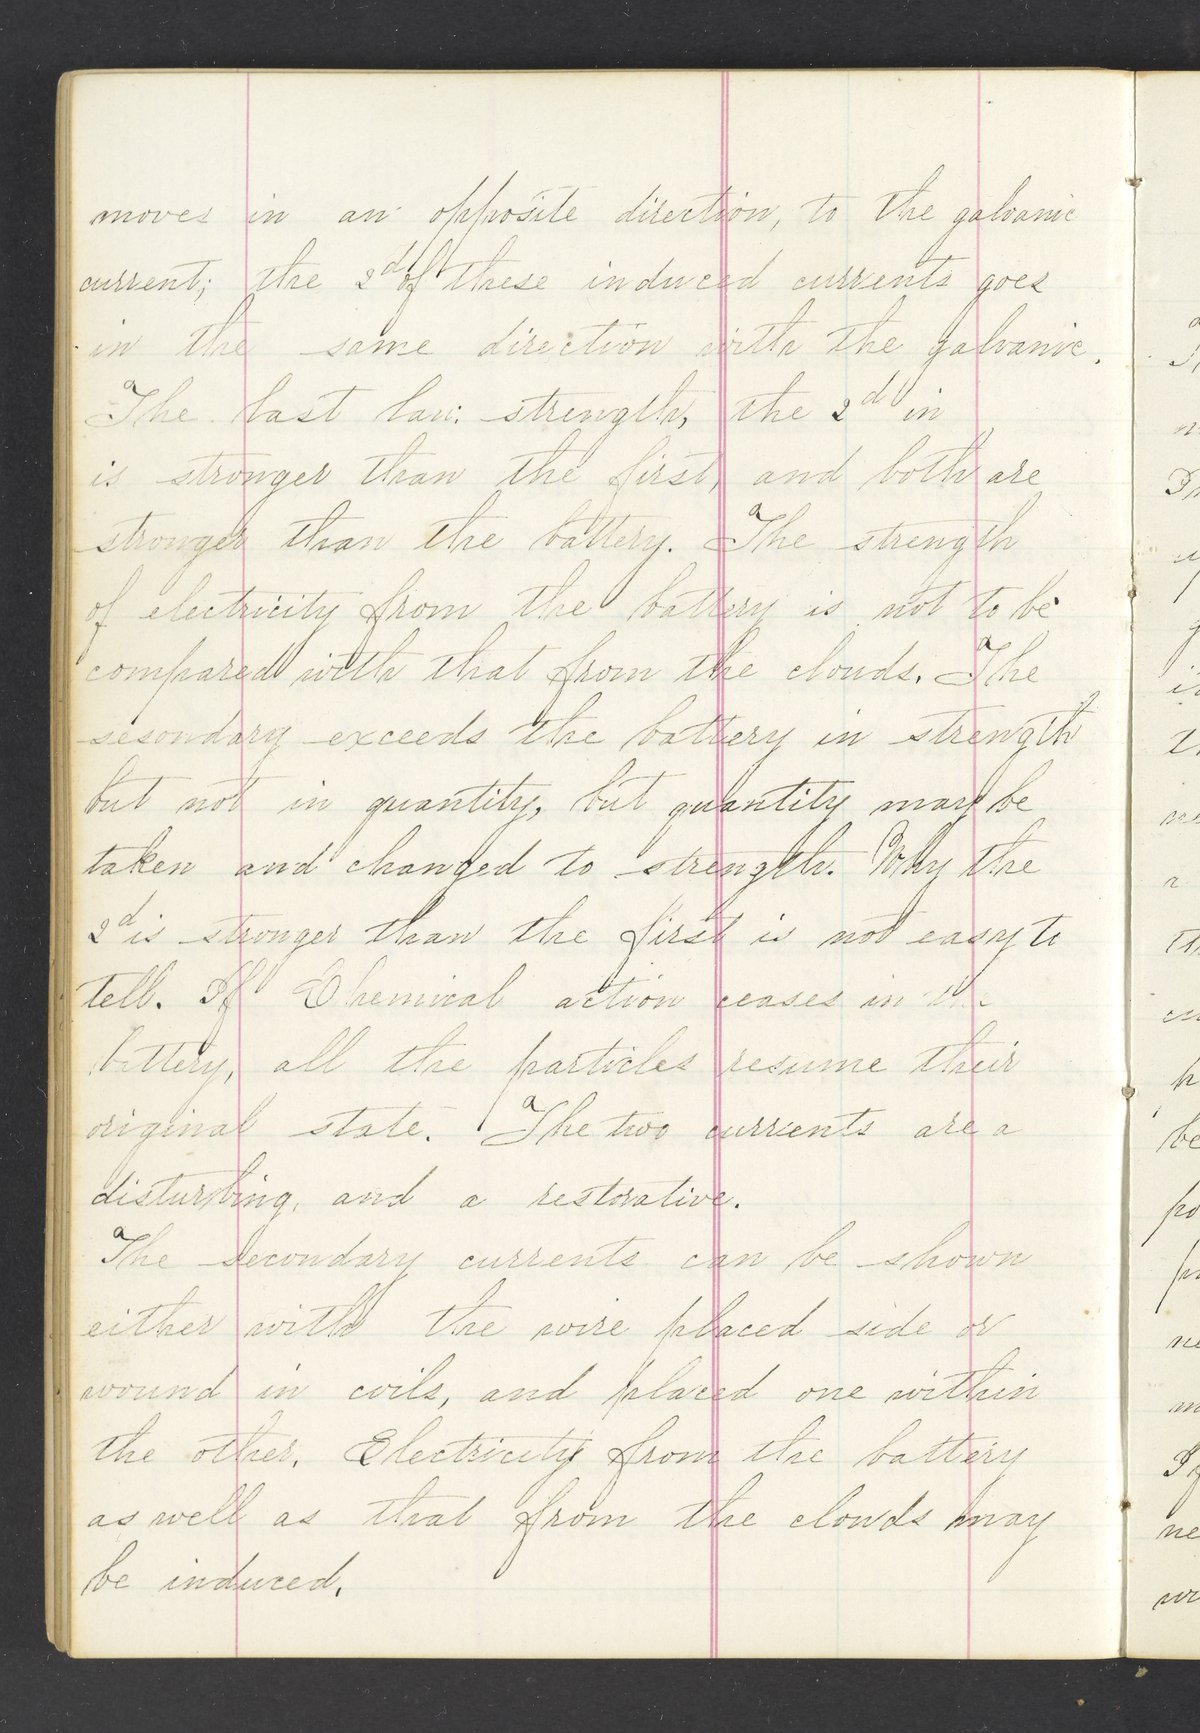 moves in an opposite direction, to the galvanic
current; the 2d of these induced currents goes
in the same direction with the galvanic.
The last law: strength, the 2d in
is stronger than the first, and both are
stronger than the battery. The strength
of electricity from the battery is not to be
compared with that from the clouds. The
sesondary exceeds the battery in strength
but not in quantity, but quantity may be
taken and changed to strength. Why the
2d is stronger than the first is not easy to
tell. If Chemical action ceases in the
battery, all the particles resume their
original state. The two currents are a
disturbing, and a restorative.
The secondary currents can be shown
either with the wire placed side or
wound in coils, and placed one within
the other. Electricity from the battery
as well as that from the clouds may
be induced.